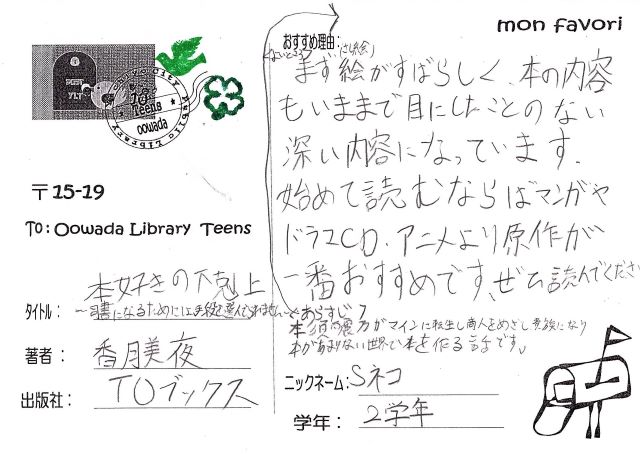 mon favori
〒15-19
TO: Oowada Library Teens
タイトル: 本好きの下剋上
~司書になるためには手段を選んでいられません~
著者: 香月美夜
出版社: TOブックス
おすすめ理由:
まず絵がすばらしく、本の内容
もいままで目にしたことのない
深い内容になっています。
始めて読むならばマンガや
ドラマCD、アニメより原作が
一番おすすめです。ぜひ読んでください
あらすじ
本須麗乃がマインに転生し商人をめざし貴族になり
本があまりない世界で本を作る話です。
ニックネーム: Sネコ
学年: 2学年
Teens
oowada